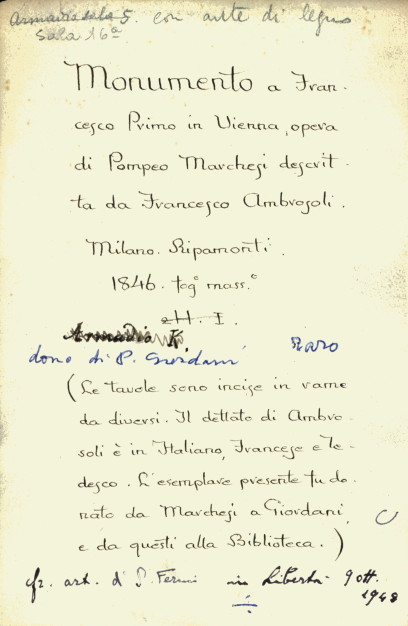 Armadio sala 5. con ante di legno
Sala 16ª
Monumento a Fran-
cesco Primo in Vienna, opera
di Pompeo Marchesi descrit-
ta da Francesco Ambrosoli.
Milano. Ripamonti.
1846. fogº mass.º
H. I.
Armadio K.
dono di P. Giordani raro
(Le tavole sono incise in rame
da diversi. Il dettato di Ambro-
soli è in Italiano, Francese e Te-
desco. L'esemplare presente fu do-
nato da Marchesi a Giordani,
e da questi alla Biblioteca.)
cfr. art. di S. Fermi in Libertà 9 ott.
1948